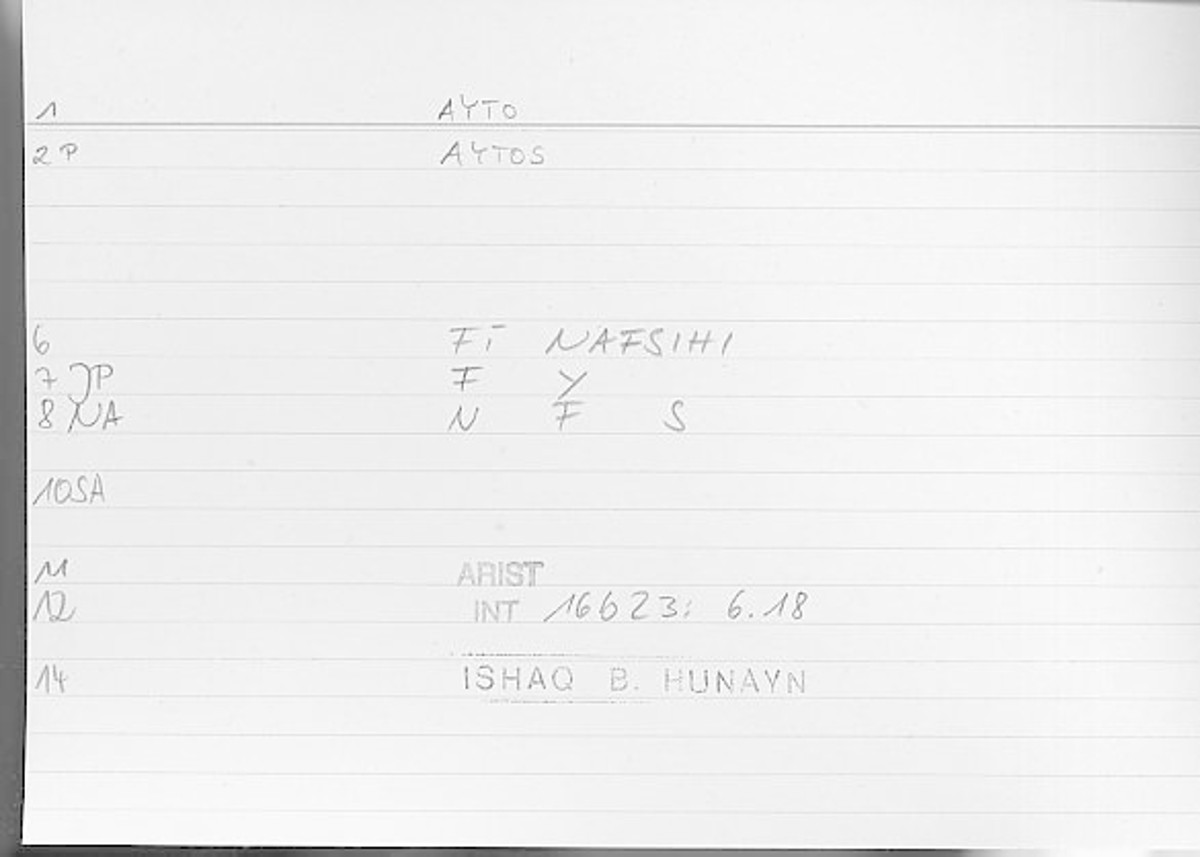 1 AYTO
2 P AYTOS
6 FĪ NAFSIHI
7 JP F Y
8 NA N F S
10SA
11 ARIST
12 INT 16b23: 6.18
14 ISHAQ B. HUNAYN